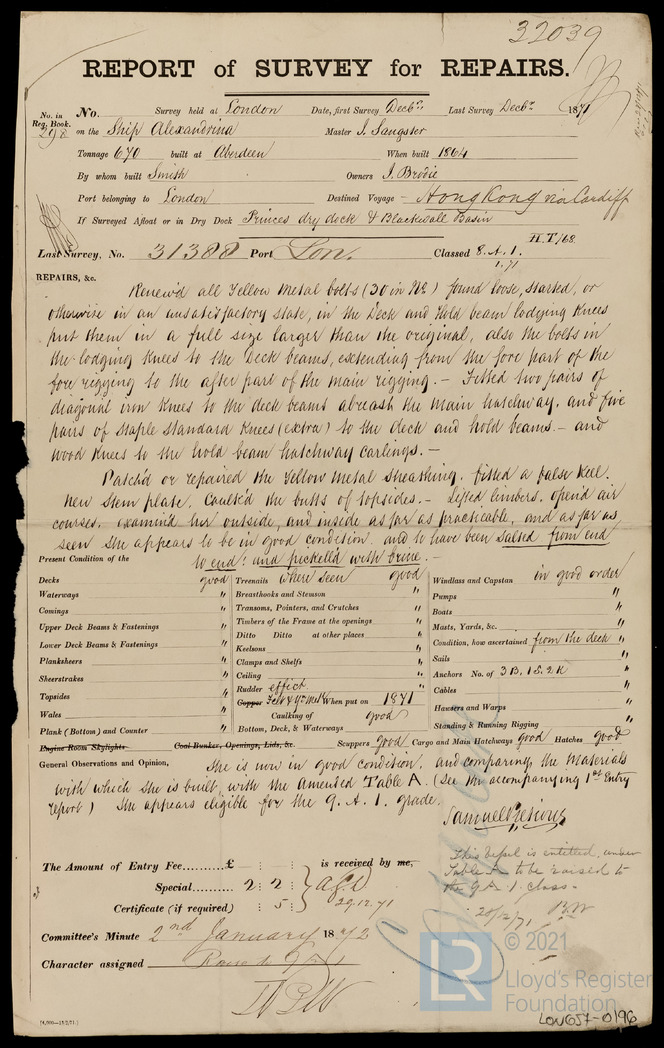 32039
REPORT of SURVEY for REPAIRS.
No. in Reg. Book. 298
No. Survey held at London Date, first Survey Decbr. Last Survey Decbr. 1871
on the Ship Alexandrina Master J. Sangster
Tonnage 670 built at Aberdeen When built 1864
By whom built Smith Owners J. Brodie
Port belonging to London Destined Voyage - Hong Kong via Cardiff
If Surveyed Afloat or in Dry Dock Princes dry dock & Blackwall Basin
Last Survey, No. 31388 Port Lon. Classed 8. A. 1. H.T/68.
1.71
REPAIRS, &c.
Renew'd all Yellow Metal bolts (30 in No.) found loose, started, or
otherwise in an unsatisfactory state, in the Deck and Hold beam lodging Knees
put them in a full size larger than the original, also the bolts in
the lodging Knees to the Deck beams, extending from the fore part of the
fore rigging to the after part of the main rigging. — Fitted two pairs of
diagonal iron Knees to the deck beams abreast the main hatchway, and five
pairs of Staple Standard Knees (extra) to the deck and hold beams. — and
wood Knees to the hold beam hatchway carlings. —
Patch'd or repaired the Yellow Metal Sheathing. fitted a false Keel.
New Stem plate. Caulk'd the butts of topsides. — Lifted limbers. open'd air
courses. examined her outside, and inside as far as practicable, and as far as
seen she appears to be in good condition. and to have been salted from end
to end: and pickell'd with brine. —
Present Condition of the
Decks good Treenails where seen good Windlass and Capstan in good order
Waterways " Breasthooks and Stemson " Pumps "
Comings " Transoms, Pointers, and Crutches " Boats "
Upper Deck Beams & Fastenings " Timbers of the Frame at the openings " Masts, Yards, &c. "
Lower Deck Beams & Fastenings " Ditto Ditto at other places " Condition, how ascertained from the deck "
Planksheers " Keelsons " Sails "
Sheerstrakes " Clamps and Shelfs " Anchors No. of 3 B. 1 S. 2 K "
Topsides " Ceiling " Cables "
Wales " Rudder effict. " Hawsers and Warps "
Plank (Bottom) and Counter " Copper Felt & Y. Metl When put on 1871 Standing & Running Rigging "
Caulking of good
Bottom, Deck, & Waterways
Engine Room Skylights Coal Bunker, Openings, Lids, &c. Scuppers good Cargo and Main Hatchways good Hatches good
General Observations and Opinion, She is now in good condition. and comparing the Materials
with which she is built, with the Amended Table A. (See the accompanying 1st Entry
report) She appears eligible for the 9. A. 1. grade.
The Amount of Entry Fee..........£ : : is received by me,
Special......... 2 : 2 :
Certificate (if required) : 5 : 29.12.71
This Vessel is entitled, under
Table A to be raised to
the 9 A. 1. Class -
20/12/71
Committee's Minute 2nd January 1872
Character assigned
[4,000—15/2/71.]
© 2021
LR
Lloyd's Register
Foundation
LON657-0196